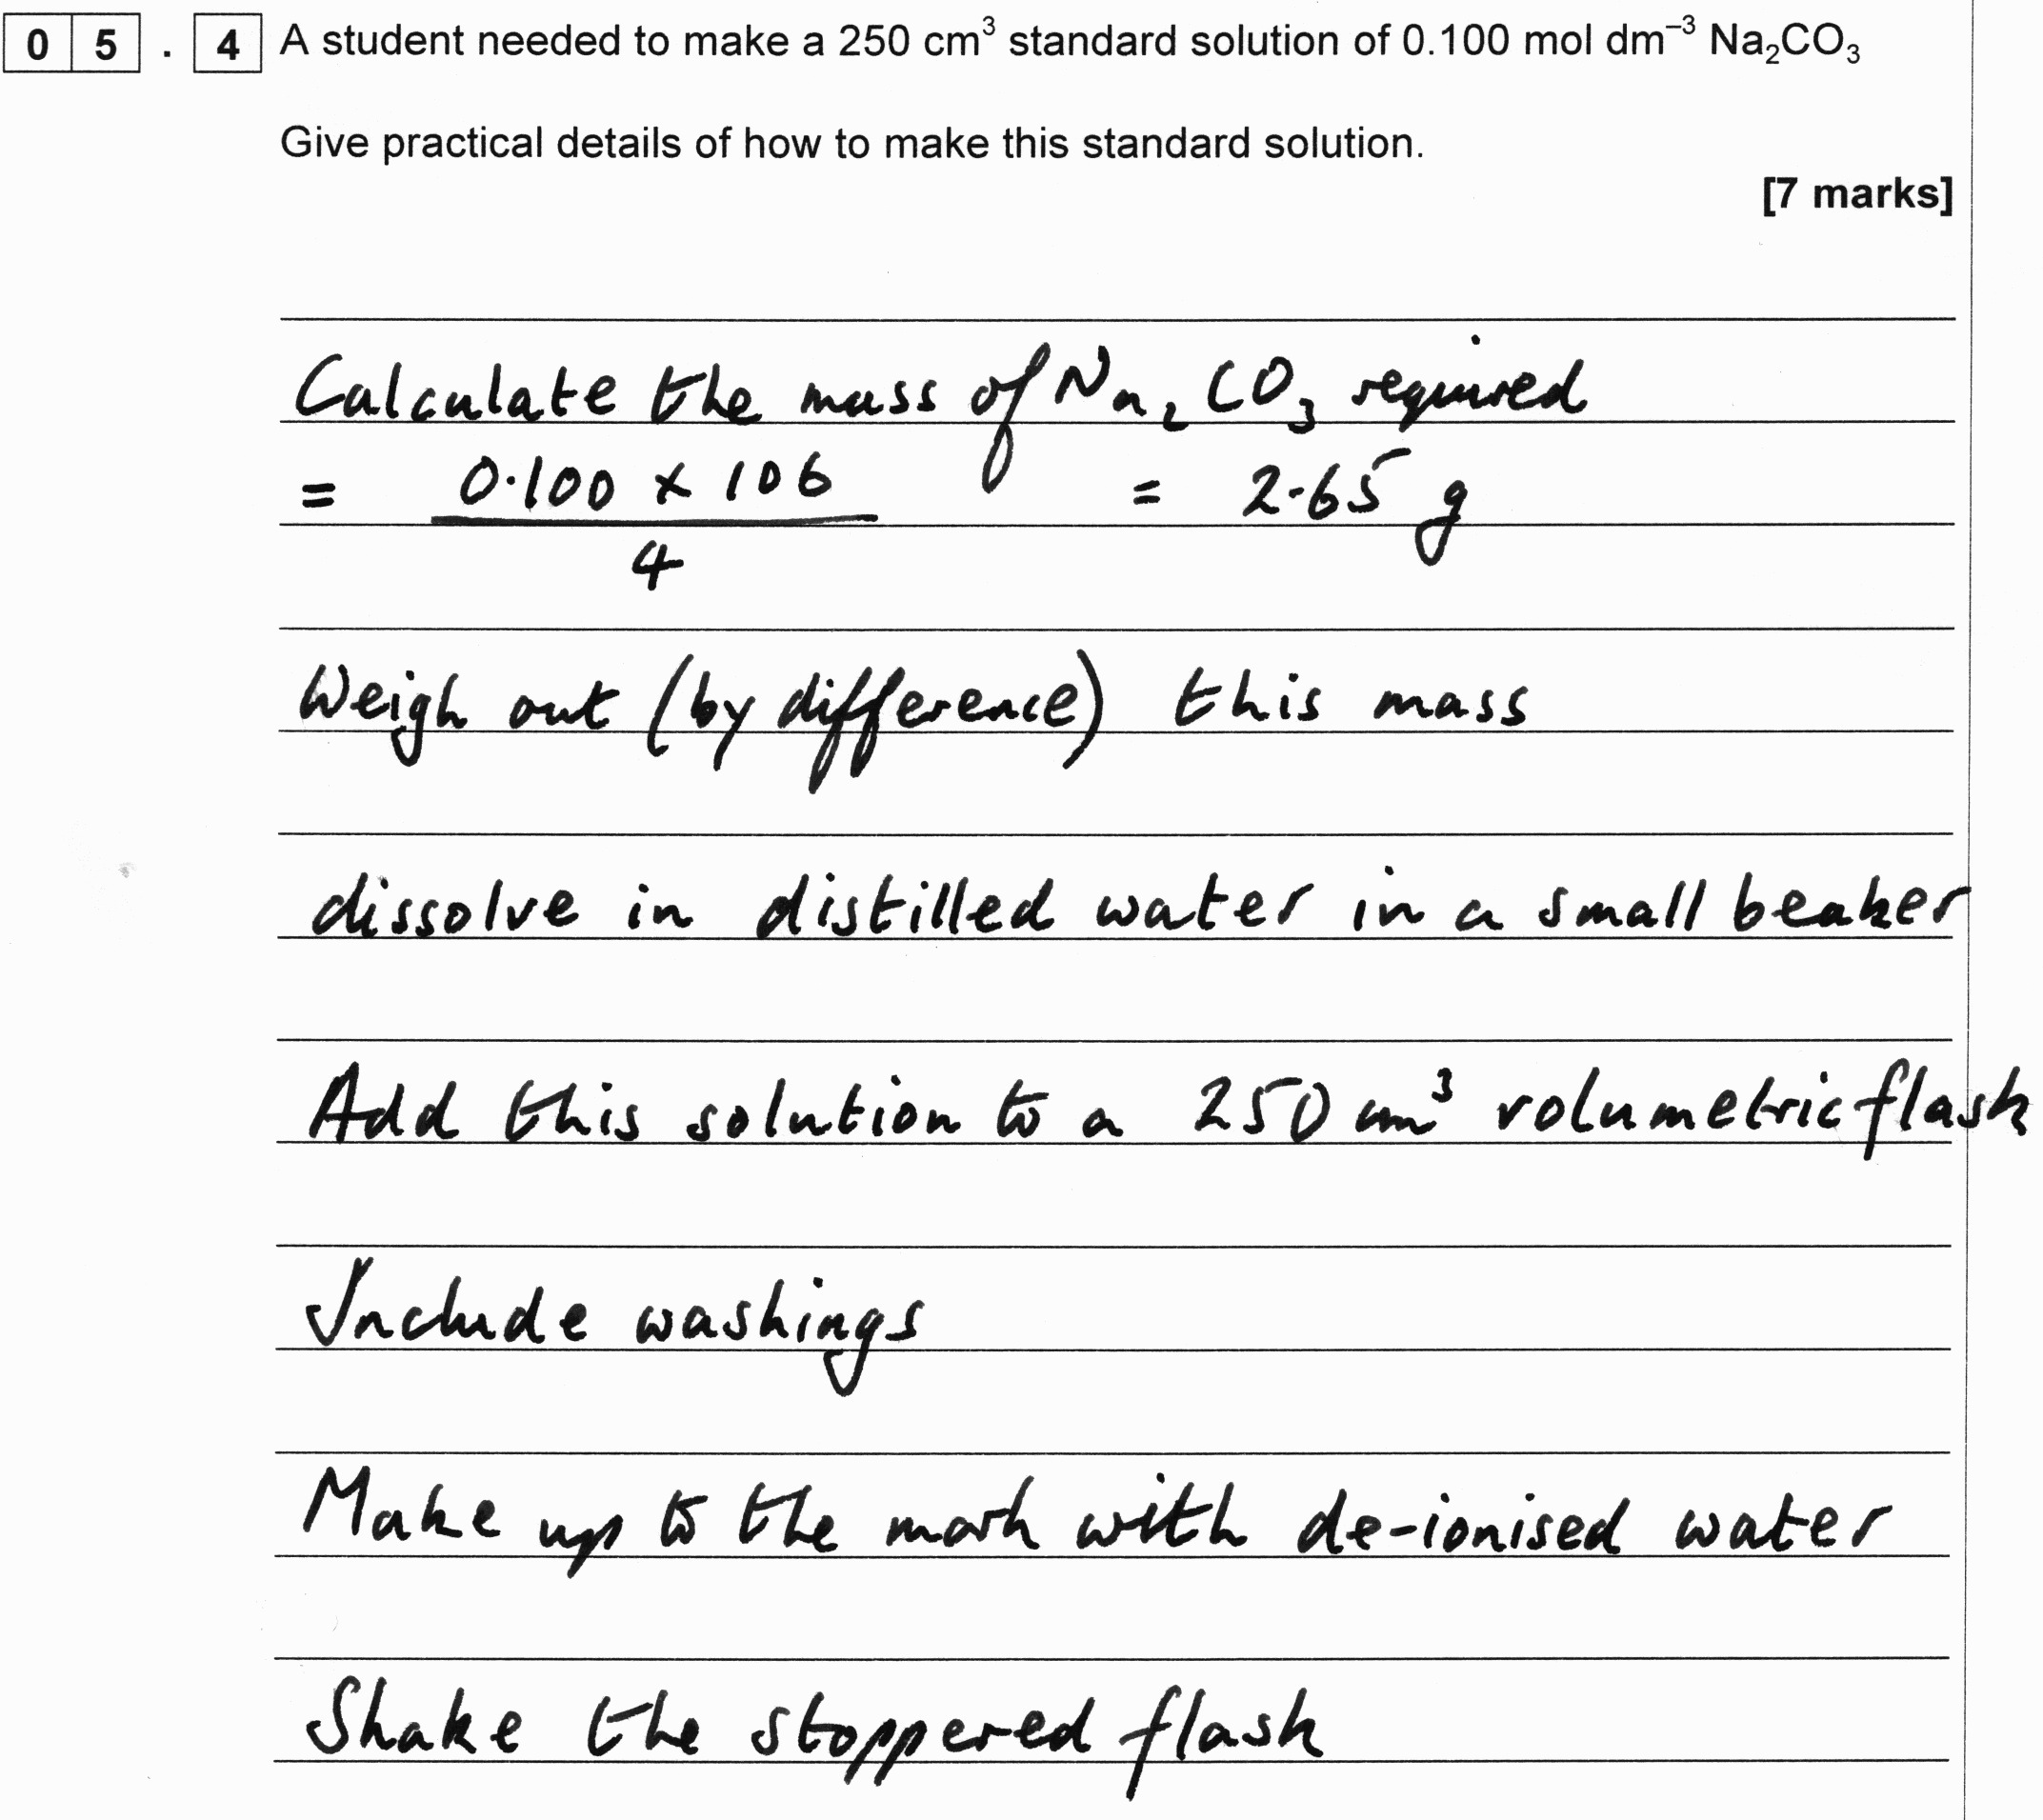 0 5 . 4 A student needed to make a 250 cm³ standard solution of 0.100 mol dm⁻³ Na₂CO₃
Give practical details of how to make this standard solution.
[7 marks]
Calculate the mass of Na₂CO₃ required
= 0.100 x 106 / 4 = 2.65 g
Weigh out (by difference) this mass
dissolve in distilled water in a small beaker
Add this solution to a 250 cm³ volumetric flask
Include washings
Make up to the mark with de-ionised water
Shake the stoppered flask